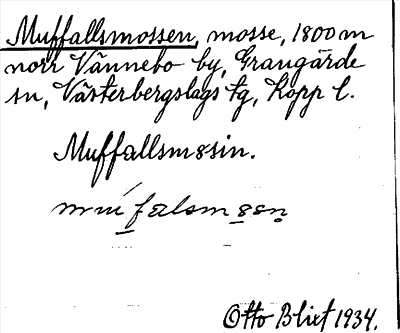 Muffallsmossen, mosse, 1800 m
norr Vännebo by, Grangärde
sn, Västerbergslags tg, Kopp l.
Muffallsmosin.
Otto Blixt 1934.